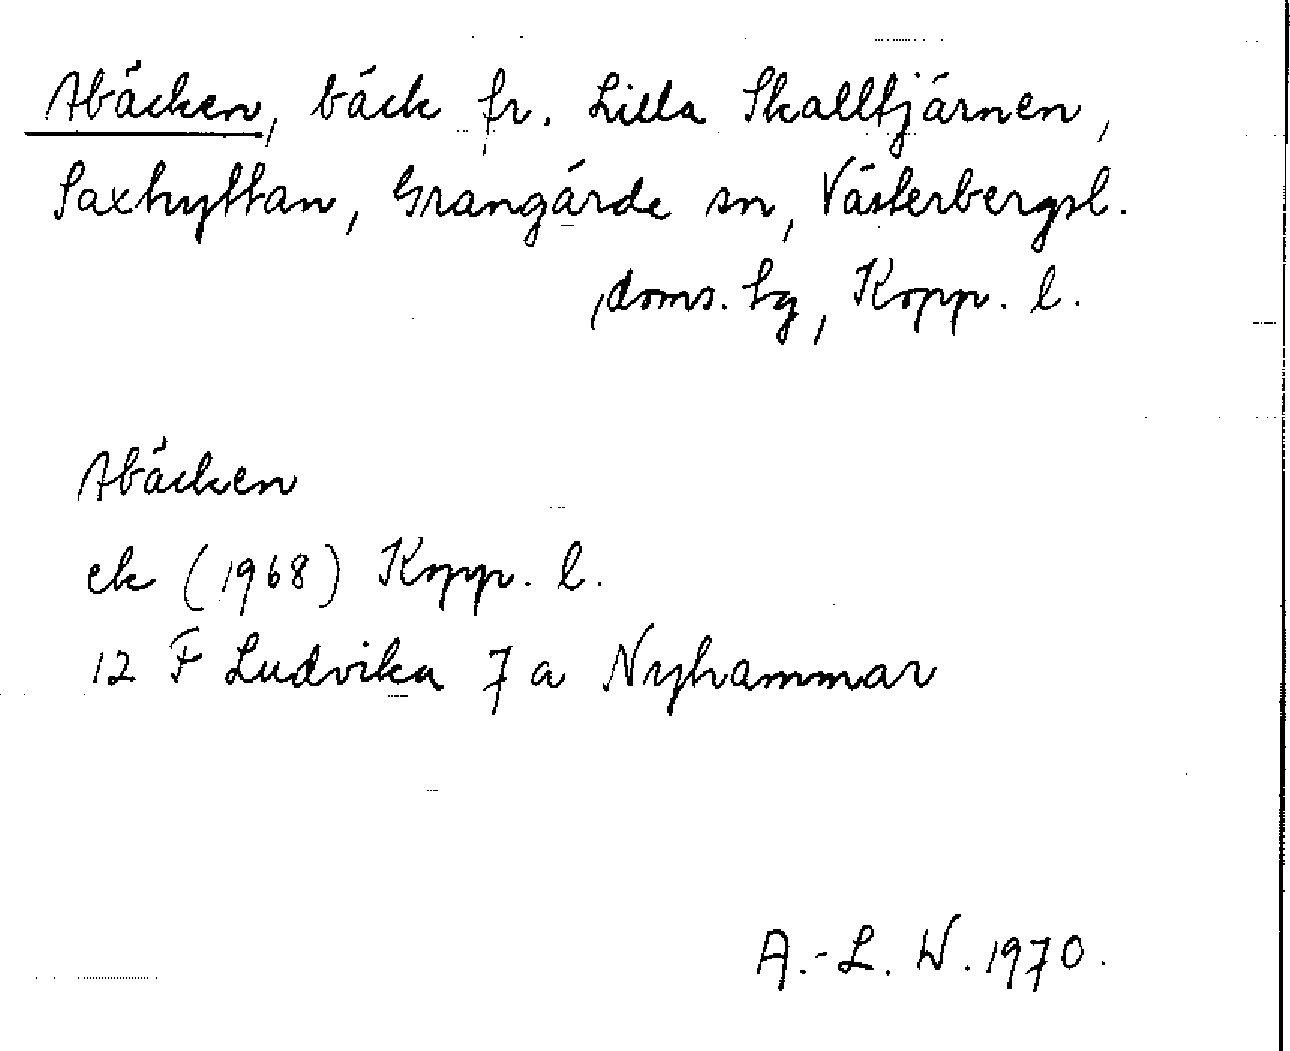 Abäcken, bäck fr. Lilla Skalltjärnen,
Saxhyttan, Grangärde sn, Västerbergsl.
doms. hg, Kopp. l.
Abäcken
ek (1968) Kopp. l.
12 F Ludvika 7 a Nyhammar
A.-L. W. 1970.